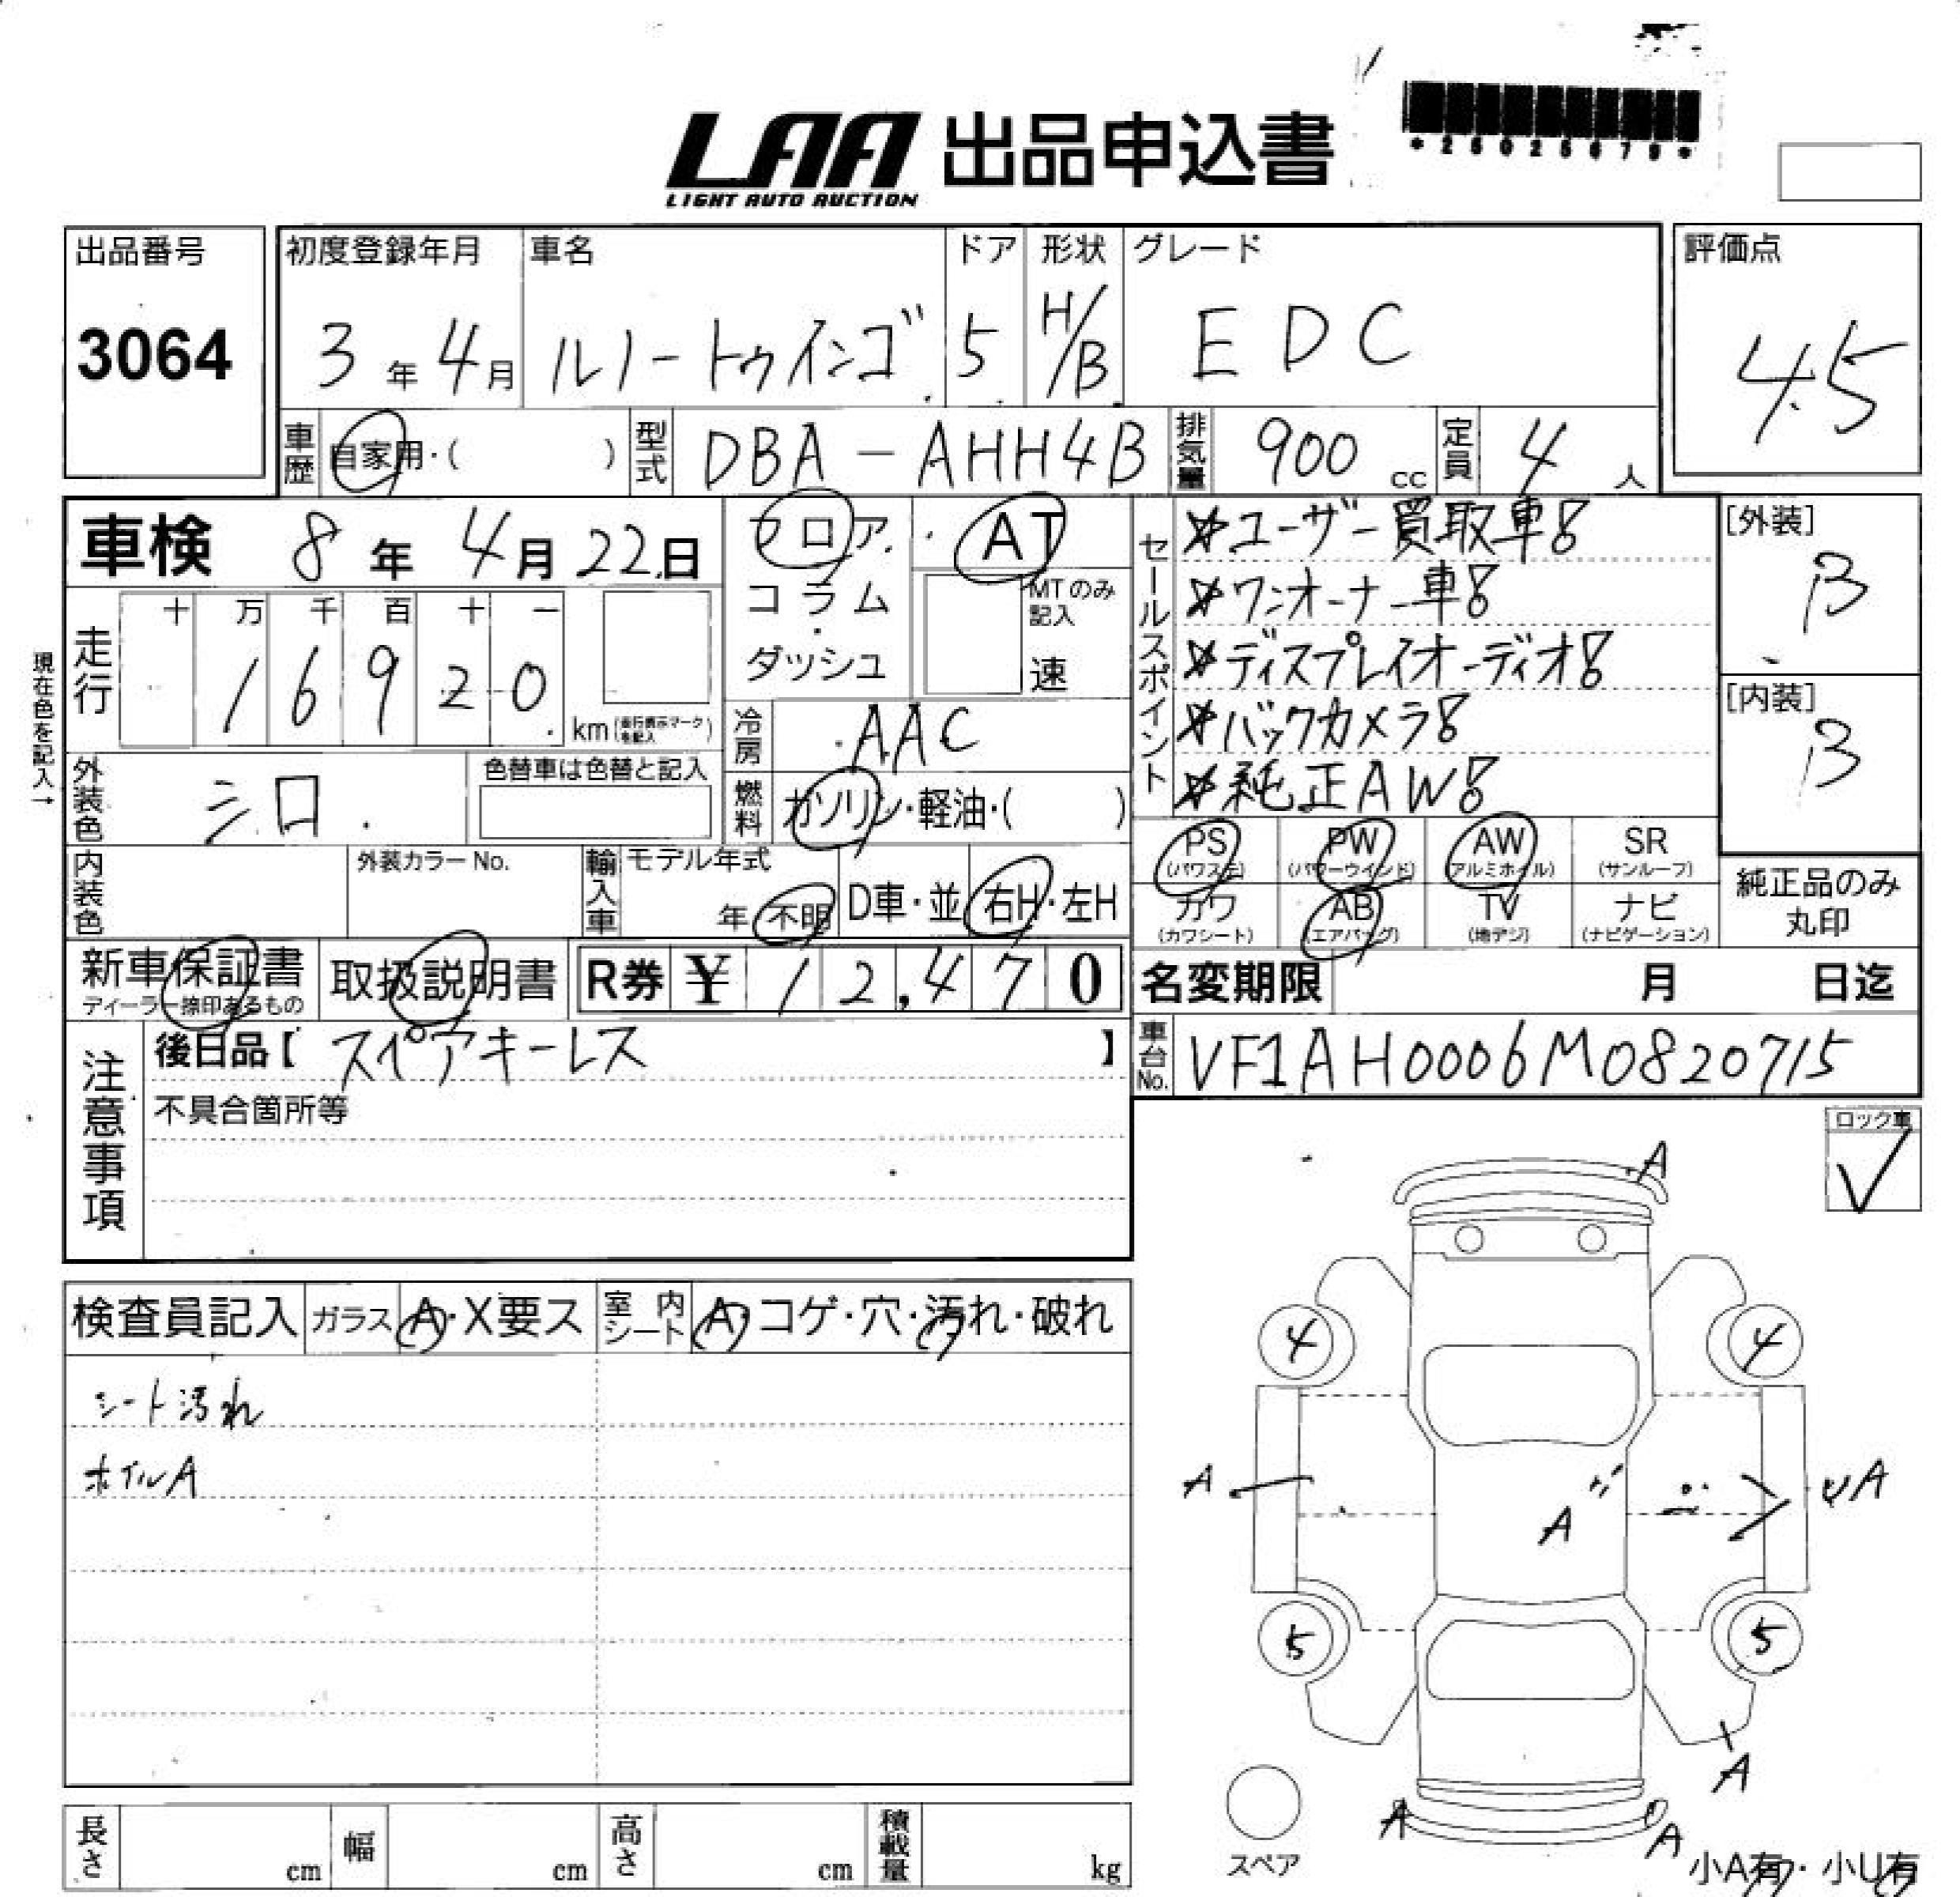 LAA 出品申込書
LIGHT AUTO AUCTION
*25025679*
出品番号 初度登録年月 車名 ドア 形状 グレード 評価点
3064 3年4月 ルノートゥインゴ 5 H/B EDC 4.5
車歴 自家用・( ) 型式 DBA-AHH4B 排気量 900 cc 定員 4 人
車検 8年4月22日 フロア AT
コラム・ MTのみ記入
ダッシュ 速
セールスポイント
☆ユーザー買取車!
☆ワンオーナー車!
☆ディスプレイオーディオ!
☆バックカメラ!
☆純正AW!
[外装] B
[内装] B
現在色を記入→
走行 十 万 千 百 十 一
1 6 9 2 0 km(走行表示マークを記入)
冷房 AAC
外装色 シロ 色替車は色替と記入 燃料 ガソリン・軽油・( )
内装色 外装カラーNo. 輸入車 モデル年式 年 不明 D車・並 右H・左H
PS (パワステ) PW (パワーウインド) AW (アルミホイル) SR (サンルーフ)
カワ (カワシート) AB (エアバッグ) TV (地デジ) ナビ (ナビゲーション)
純正品のみ
丸印
新車保証書 取扱説明書 R券 ¥ 12,470
ディーラー捺印あるもの
名変期限 月 日迄
注意事項
後日品【 スペアキーレス 】
不具合箇所等
車台No. VF1AH0006M0820715
ロック車 ✓
検査員記入 ガラス A・X要ス 室内シート A・コゲ・穴・汚れ・破れ
シート汚れ
ホイルA
A
4 4
A A UA
5 5
A
A A
スペア
小A有・小U有
長さ cm 幅 cm 高さ cm 積載量 kg